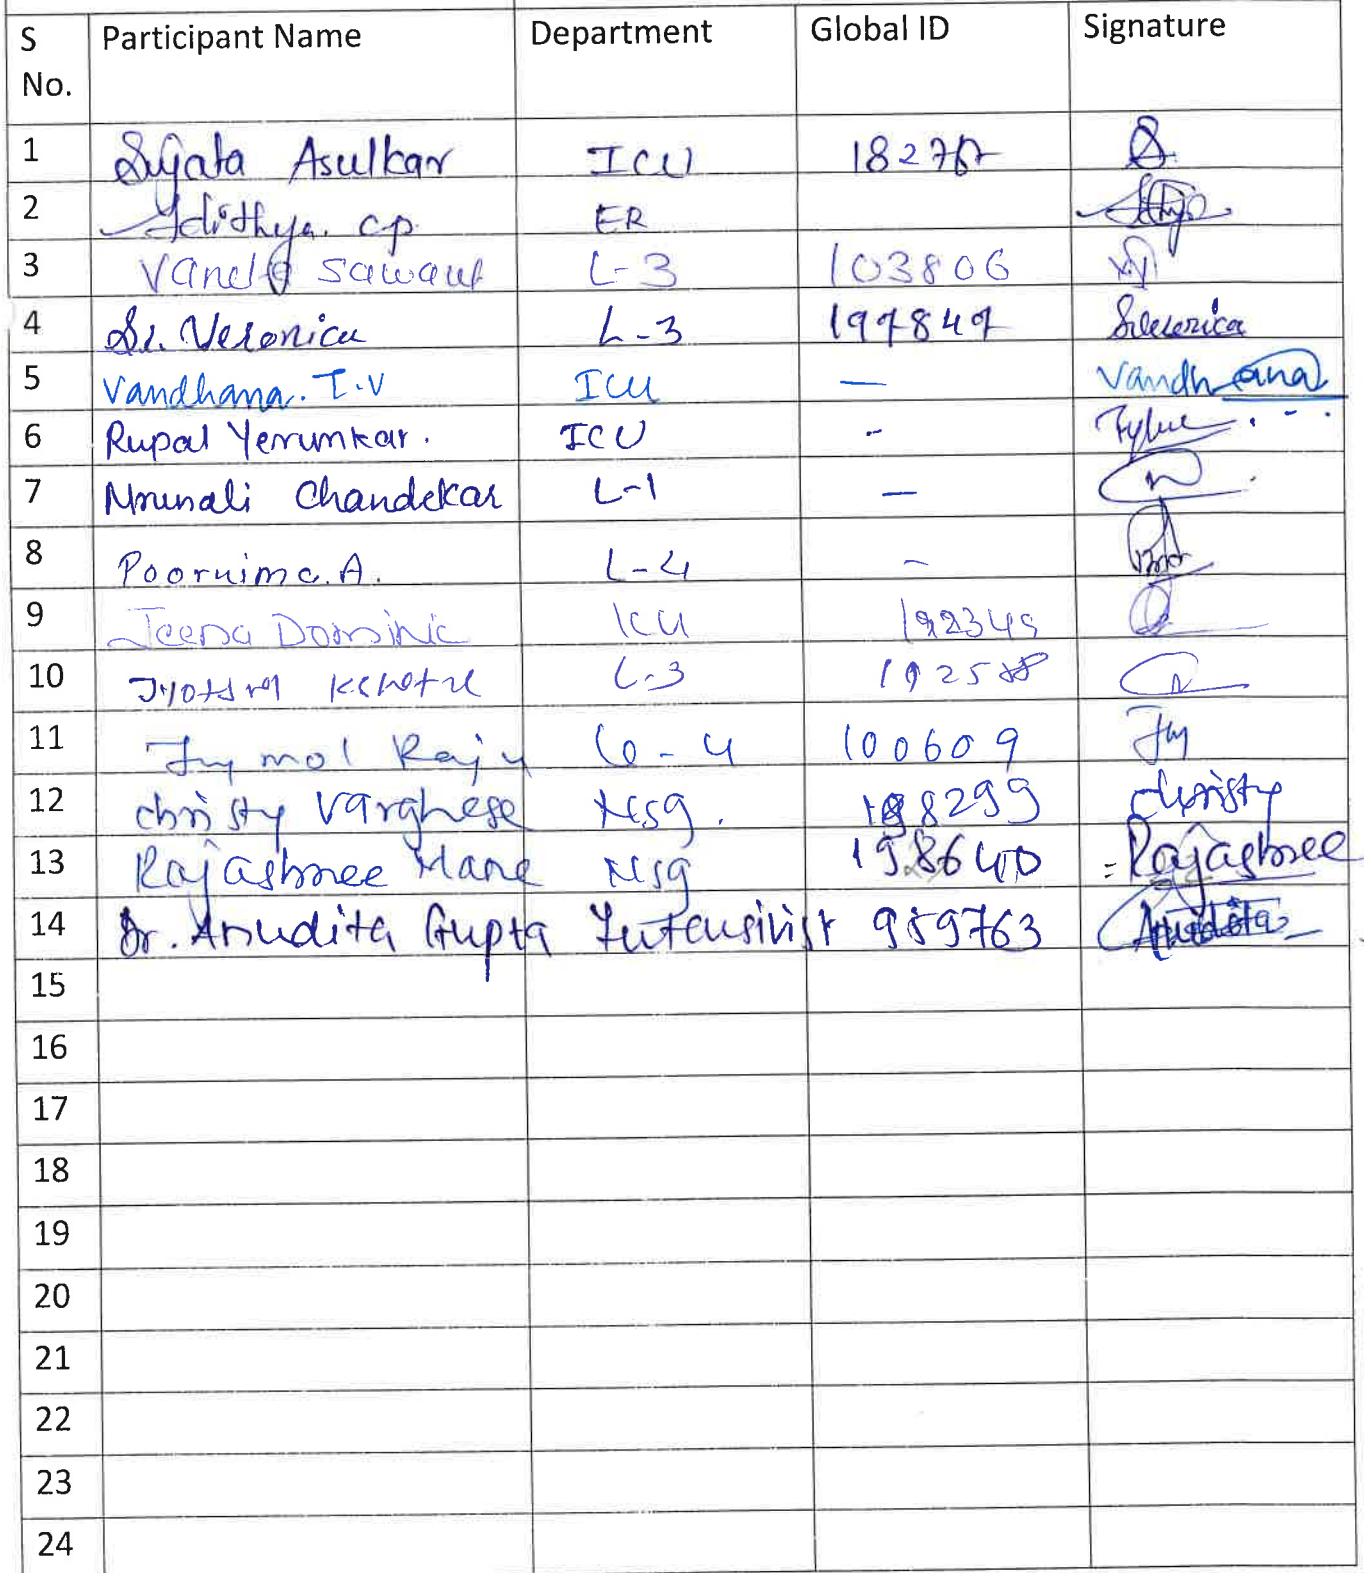 S No. Participant Name Department Global ID Signature
1 Sujata Asulkar ICU
2 Adithya. C.P. ER
3 Sawant L-3 103806
4 Sr. Veronica L-3 Veronica
5 Vandhana. T.V ICU — Vandhana
6 Rupal Yerumkar. ICU -
7 Mrunali Chandekar L-1 —
8 Poornima. A. L-4 -
9 Jeena Dominic ICU
10 L-3
11 Jiymol Raju 100609
12 christy Varghese Nsg. christy
13 Rajashree Mane Nsg 198640 Rajashree
14 Dr. Anudita Gupta Intensivist 959763 Anudita
15
16
17
18
19
20
21
22
23
24